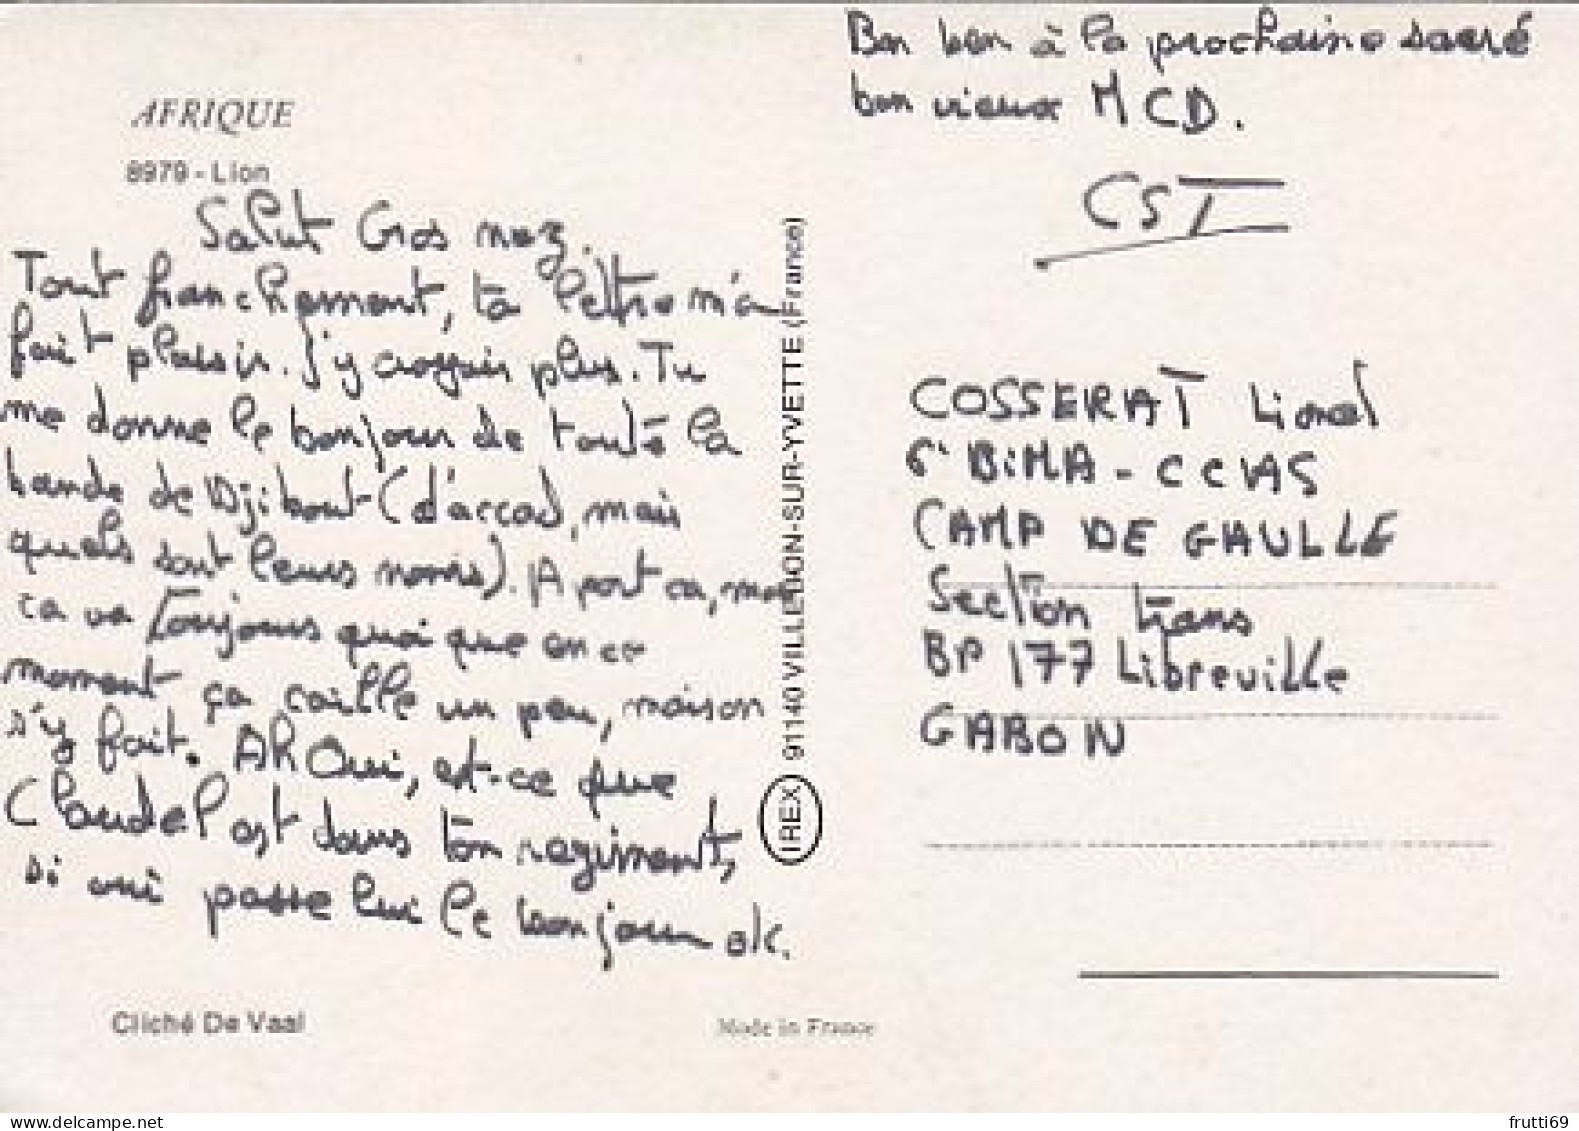 AFRIQUE
8979 - Lion
Salut Gros nez.
Tout franchement, ta lettre m'a
fait plaisir. J'y croyais plus. Tu
me donne le bonjour de toute la
bande de Djibouti (d'accod, mais
quels sont leurs noms). A part ca, moi
ca va toujours quoi que en ce
moment ça caille un peu, maison
s'y fait. Ah Oui, est-ce que
Claudel est dans ton regiment,
si oui passe lui le bonjour ok.
Cliché De Vaal
Made in France
IREX 91140 VILLEBON-SUR-YVETTE (France)
Bon bon à la prochaine sacré
bon vieux MCD.
CST
COSSERAT Lionel
6° BiMA - CCIAS
CAMP DE GAULLE
Section trans
BP 177 Libreville
GABON
frutti69